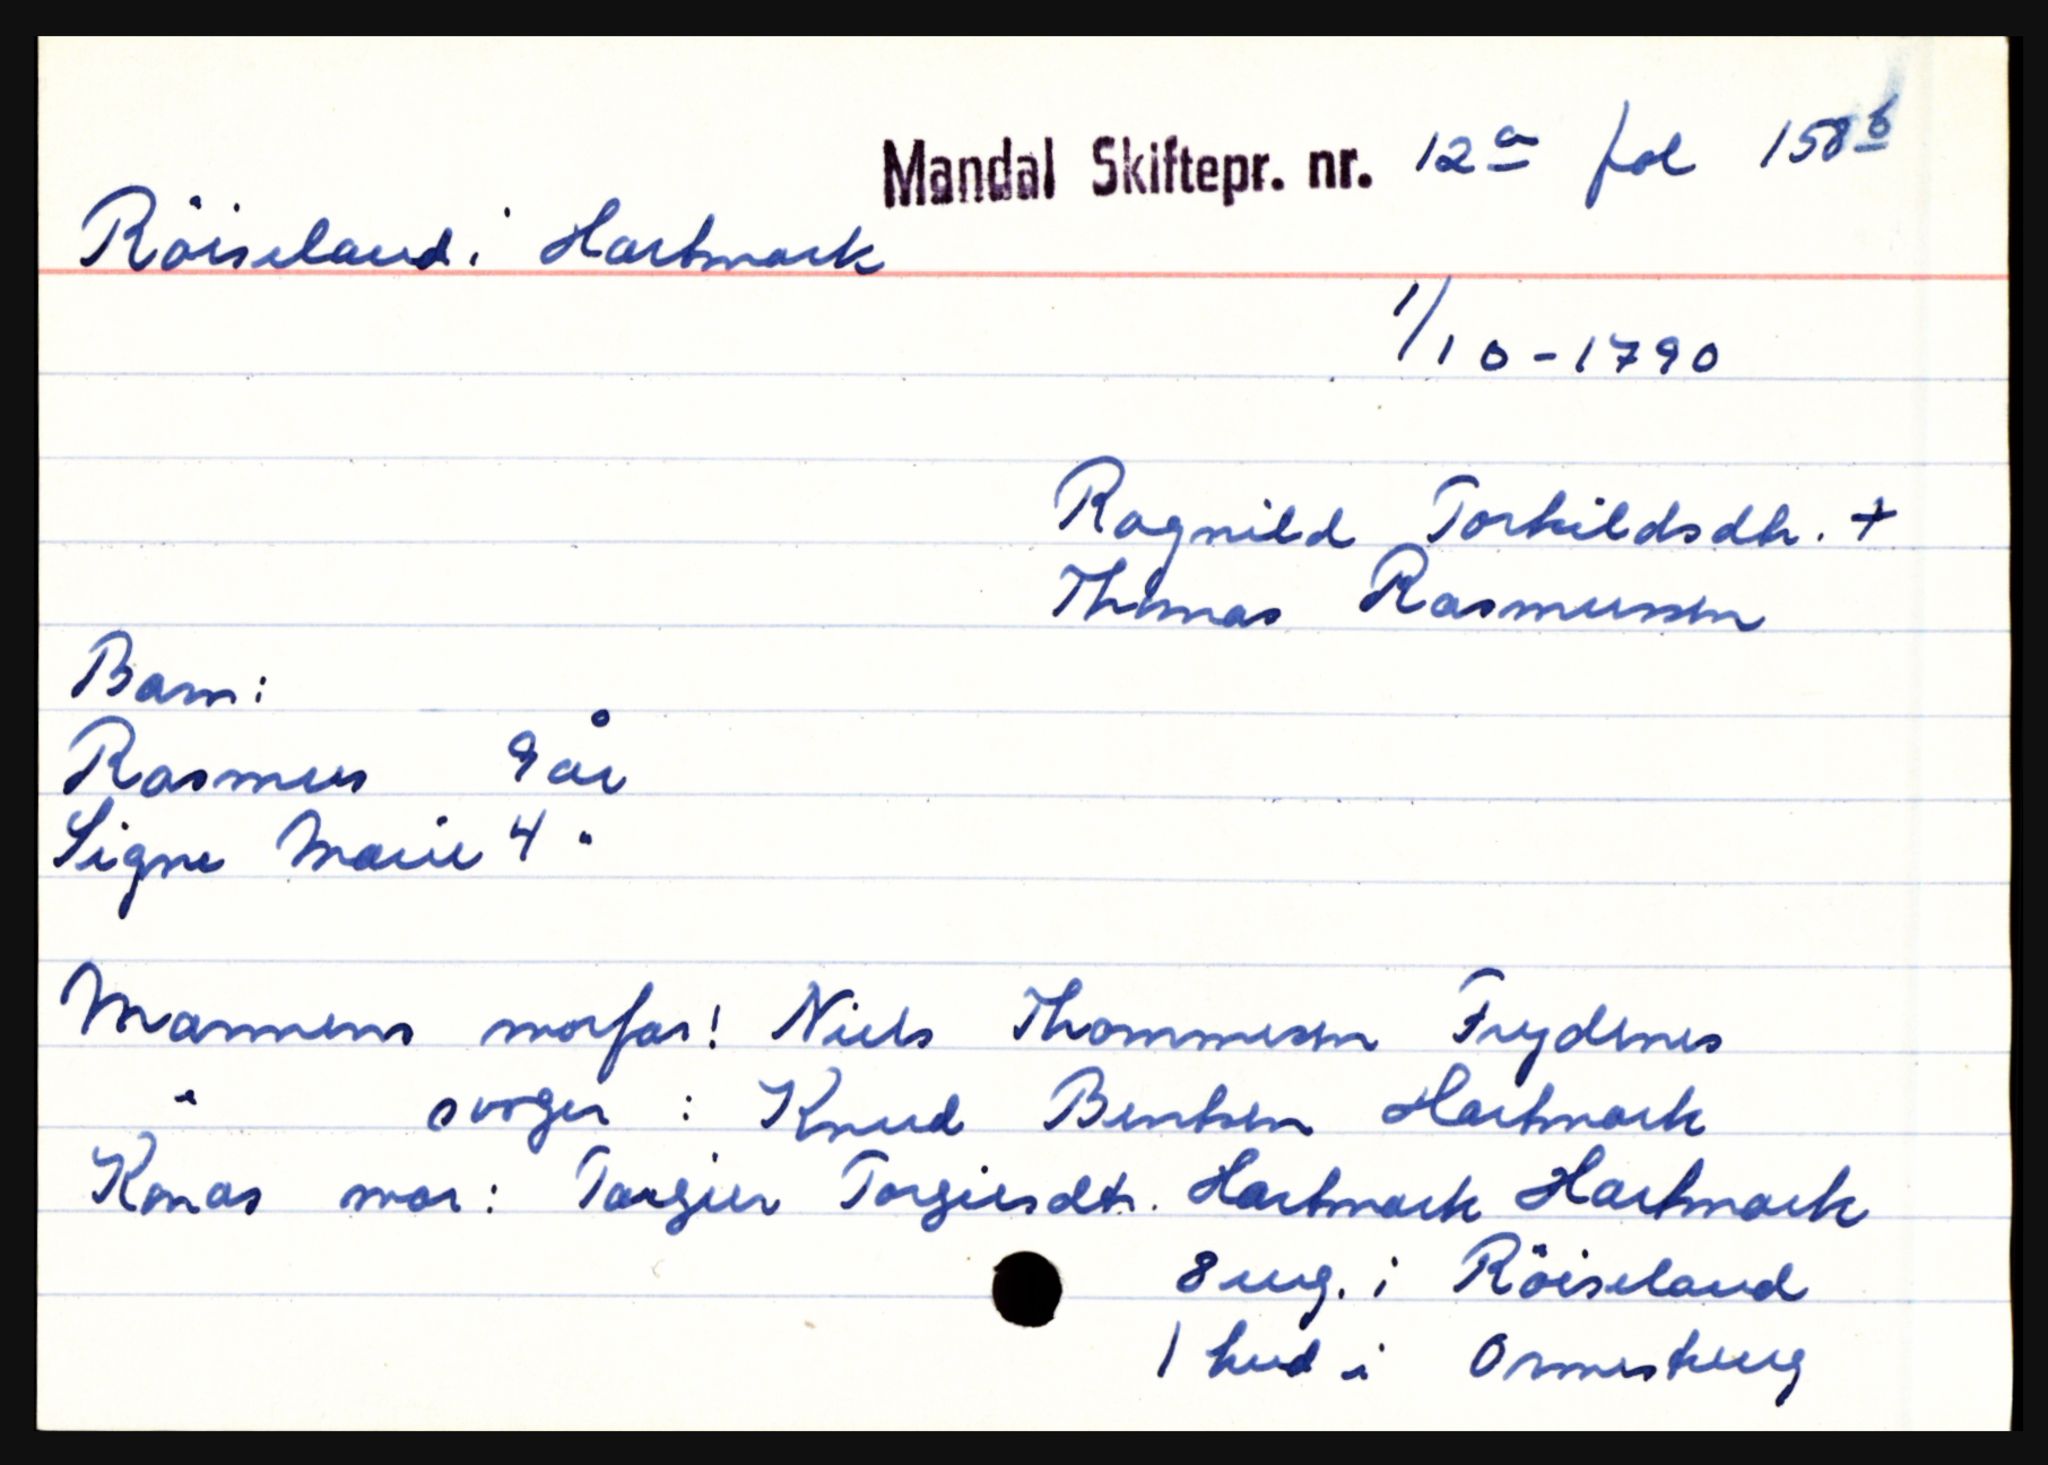 Mandal Skiftepr. nr. 12a fol 158b
Röiseland i Hartmark
1/10-1790
Ragnild Torkildsdtr. +
Thomas Rasmussen
Barn:
Rasmus 9 år
Signe Marie 4 "
Mannens morfar: Niels Thommesen Frydenes
" svoger : Knud Bentsen Hartmark
Konas mor: Torgier Torgiersdtr. Hartmark Hartmark
8 eng. i Röiseland
1 hud i Ormestueng